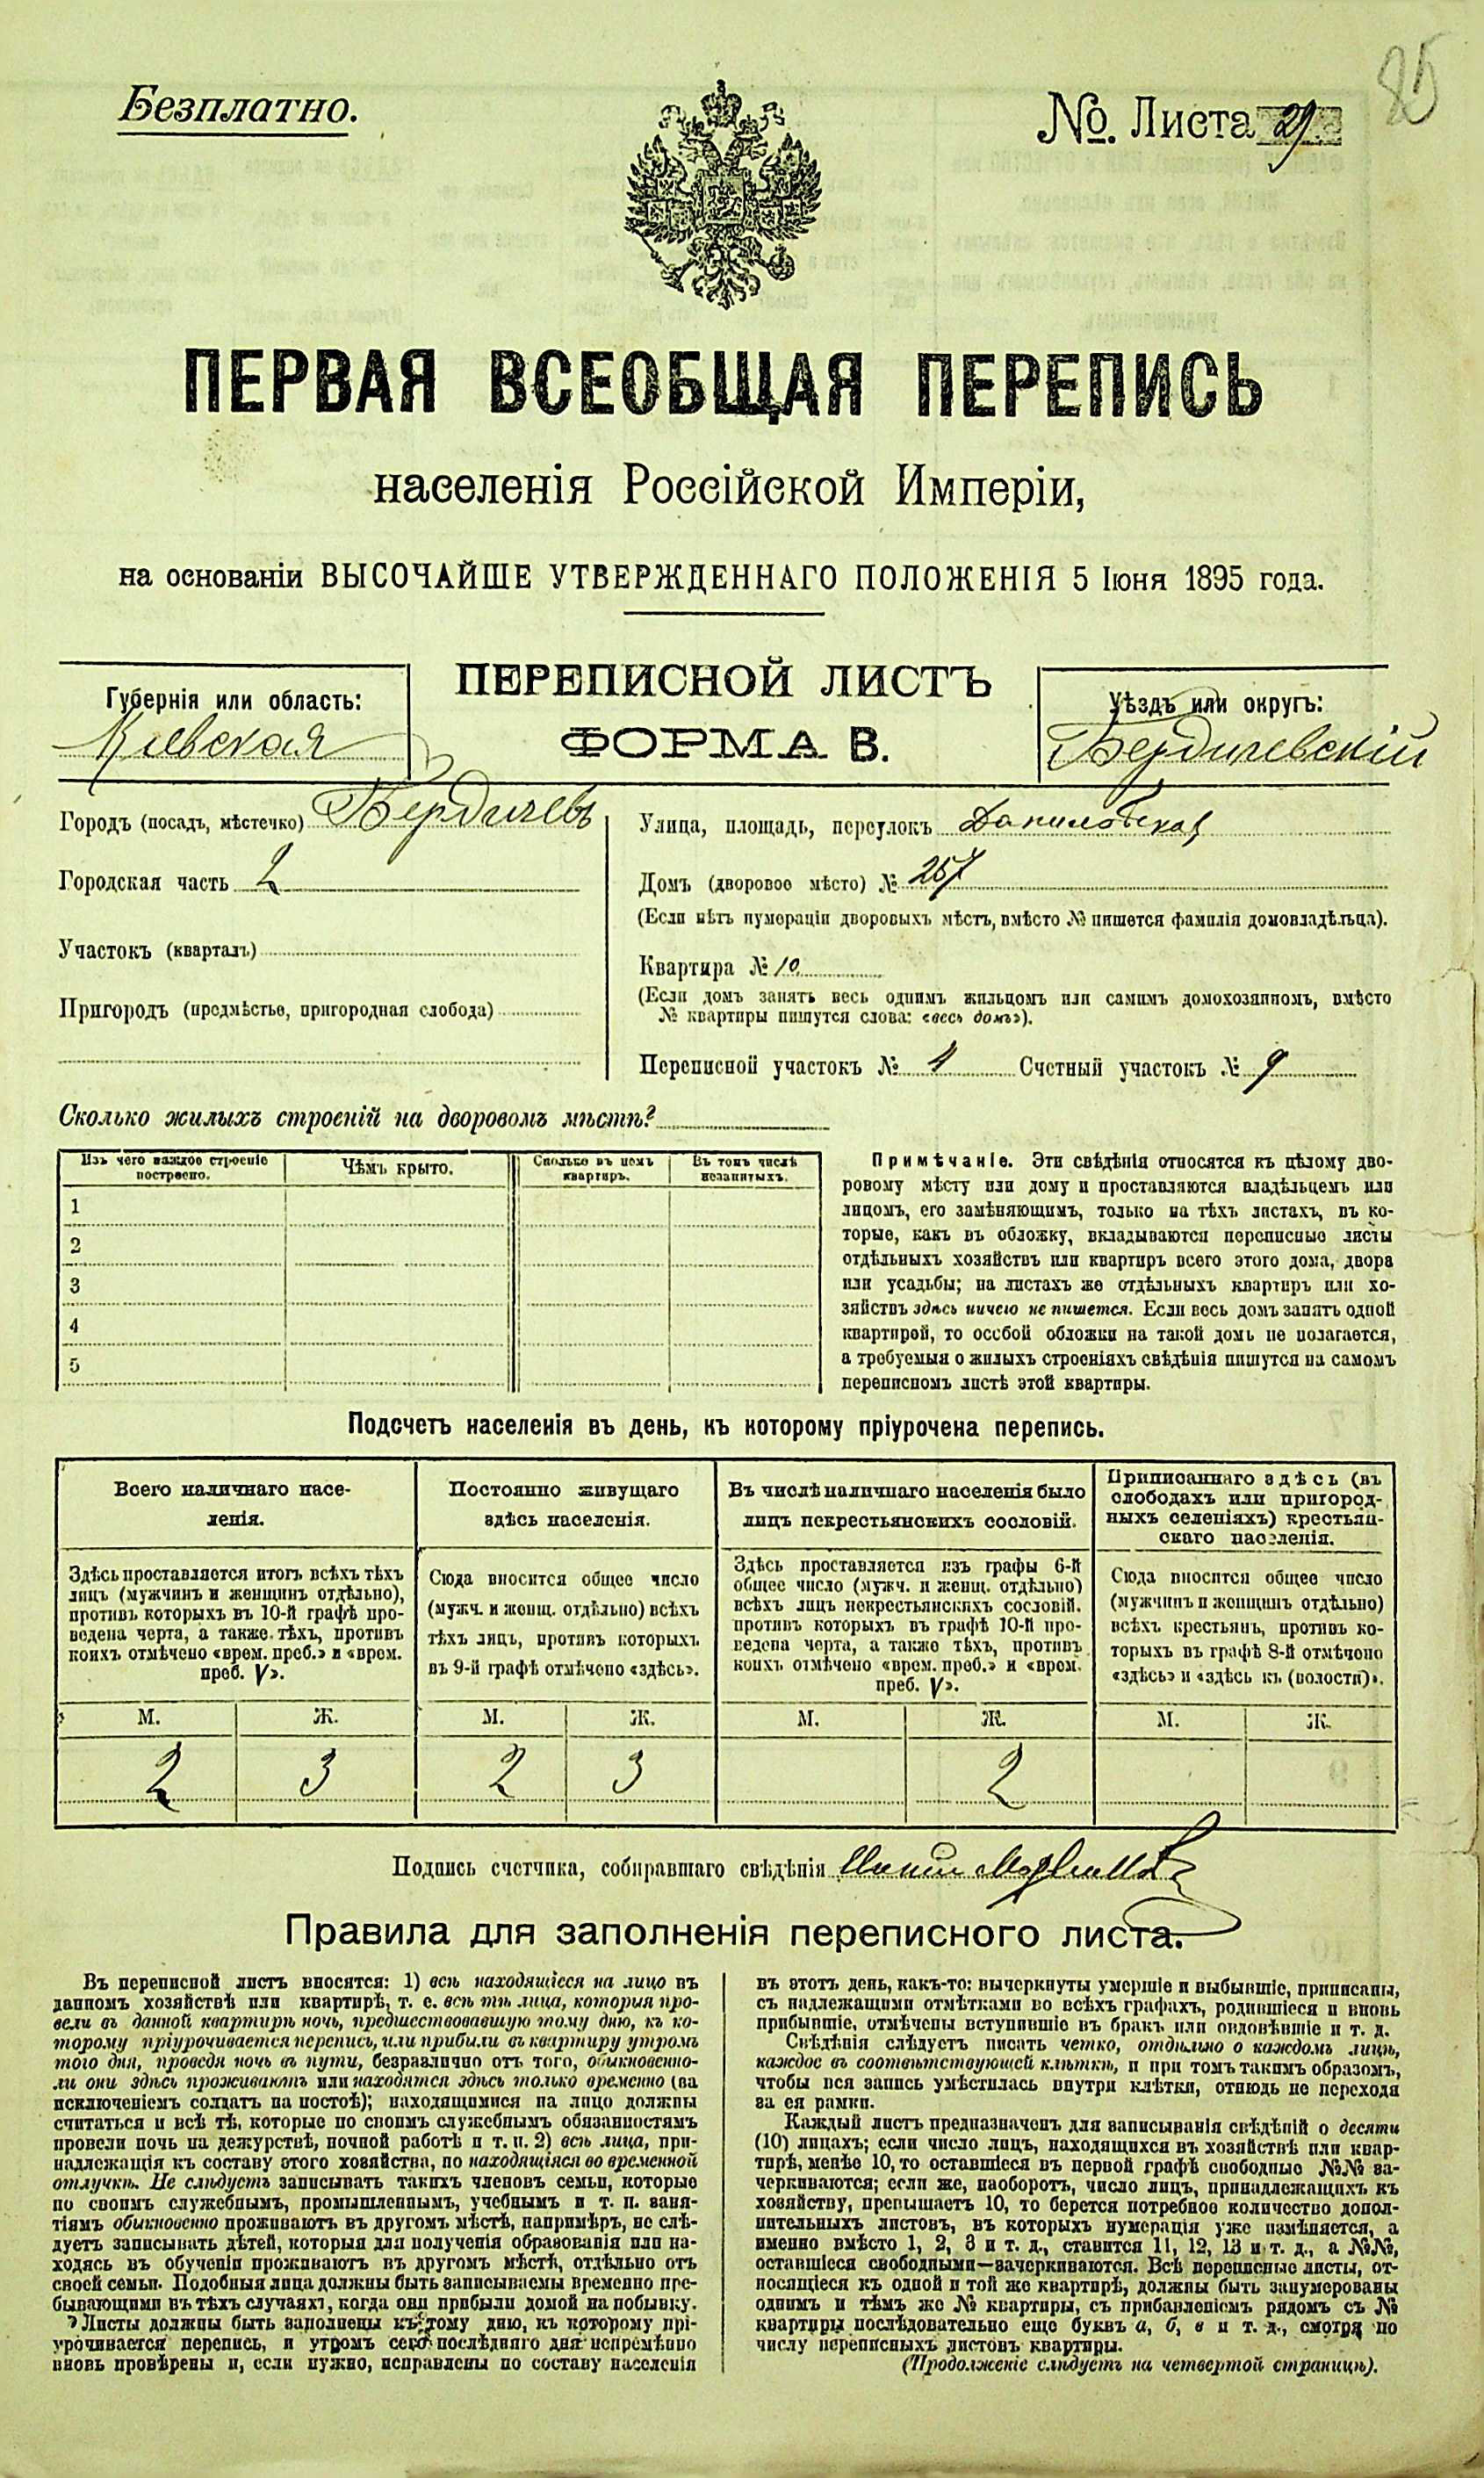 85
Безплатно.
№. Листа 29.
ПЕРВАЯ ВСЕОБЩАЯ ПЕРЕПИСЬ
населенія Россійской Имперіи,
на основаніи ВЫСОЧАЙШЕ УТВЕРЖДЕННАГО ПОЛОЖЕНІЯ 5 Іюня 1895 года.
ПЕРЕПИСНОЙ ЛИСТЪ
ФОРМА В.
Губернія или область:
Кіевская
Уѣздъ или округъ:
Бердичевскій
Городъ (посадъ, мѣстечко) Бердичевъ
Городская часть 2
Участокъ (кварталъ)
Пригородъ (предмѣстье, пригородная слобода)
Улица, площадь, переулокъ Даниловская
Домъ (дворовое мѣсто) № 257
(Если нѣтъ нумераціи дворовыхъ мѣстъ, вмѣсто № пишется фамилія домовладѣльца).
Квартира № 10
(Если домъ занятъ весь однимъ жильцомъ или самимъ домохозяиномъ, вмѣсто
№ квартиры пишутся слова: «весь домъ»).
Переписной участокъ № 1 Счетный участокъ № 9
Сколько жилыхъ строеній на дворовомъ мѣстѣ?
Изъ чего каждое строеніе
построено.
Чѣмъ крыто.
Сколько въ немъ
квартиръ.
Въ томъ числѣ
незанятыхъ.
1
2
3
4
5
Примѣчаніе. Эти свѣдѣнія относятся къ цѣлому дво-
ровому мѣсту или дому и проставляются владѣльцемъ или
лицомъ, его замѣняющимъ, только на тѣхъ листахъ, въ ко-
торые, какъ въ обложку, вкладываются переписные листы
отдѣльныхъ хозяйствъ или квартиръ всего этого дома, двора
или усадьбы; на листахъ же отдѣльныхъ квартиръ или хо-
зяйствъ здѣсь ничего не пишется. Если весь домъ занятъ одной
квартирой, то особой обложки на такой домъ не полагается,
а требуемыя о жилыхъ строеніяхъ свѣдѣнія пишутся на самомъ
переписномъ листѣ этой квартиры.
Подсчетъ населенія въ день, къ которому пріурочена перепись.
Всего наличнаго насе-
ленія.
Здѣсь проставляется итогъ всѣхъ тѣхъ
лицъ (мужчинъ и женщинъ отдѣльно),
противъ которыхъ въ 10-й графѣ про-
ведена черта, а также тѣхъ, противъ
коихъ отмѣчено «врем. преб.» и «врем.
преб. V».
Постоянно живущаго
здѣсь населенія.
Сюда вносится общее число
(мужч. и женщ. отдѣльно) всѣхъ
тѣхъ лицъ, противъ которыхъ
въ 9-й графѣ отмѣчено «здѣсь».
Въ числѣ наличнаго населенія было
лицъ некрестьянскихъ сословій.
Здѣсь проставляется изъ графы 6-й
общее число (мужч. и женщ. отдѣльно)
всѣхъ лицъ некрестьянскихъ сословій,
противъ которыхъ въ графѣ 10-й про-
ведена черта, а также тѣхъ, противъ
коихъ отмѣчено «врем. преб.» и «врем.
преб. V».
Приписаннаго здѣсь (въ
слободахъ или пригород-
ныхъ селеніяхъ) крестьян-
скаго населенія.
Сюда вносится общее число
(мужчинъ и женщинъ отдѣльно)
всѣхъ крестьянъ, противъ ко-
торыхъ въ графѣ 8-й отмѣчено
«здѣсь» и «здѣсь къ (волости)».
М. Ж. М. Ж. М. Ж. М. Ж.
2 3 2 3 2
Подпись счетчика, собиравшаго свѣдѣнія
Правила для заполненія переписного листа.
Въ переписной листъ вносятся: 1) всѣ находящіеся на лицо въ
данномъ хозяйствѣ или квартирѣ, т. е. всѣ тѣ лица, которыя про-
вели въ данной квартирѣ ночь, предшествовавшую тому дню, къ ко-
торому пріурочивается перепись, или прибыли въ квартиру утромъ
того дня, проведя ночь въ пути, безразлично отъ того, обыкновенно-
ли они здѣсь проживаютъ или находятся здѣсь только временно (за
исключеніемъ солдатъ на постоѣ); находящимися на лицо должны
считаться и всѣ тѣ, которые по своимъ служебнымъ обязанностямъ
провели ночь на дежурствѣ, ночной работѣ и т. п. 2) всѣ лица, при-
надлежащія къ составу этого хозяйства, но находящіяся во временной
отлучкѣ. Не слѣдуетъ записывать такихъ членовъ семьи, которые
по своимъ служебнымъ, промышленнымъ, учебнымъ и т. п. заня-
тіямъ обыкновенно проживаютъ въ другомъ мѣстѣ, напримѣръ, не слѣ-
дуетъ записывать дѣтей, которыя для полученія образованія или на-
ходясь въ обученіи проживаютъ въ другомъ мѣстѣ, отдѣльно отъ
своей семьи. Подобныя лица должны быть записываемы временно пре-
бывающими въ тѣхъ случаяхъ, когда они прибыли домой на побывку.
Листы должны быть заполнены къ тому дню, къ которому прі-
урочивается перепись, и утромъ сего послѣдняго дня непремѣнно
вновь провѣрены и, если нужно, исправлены по составу населенія
въ этотъ день, какъ-то: вычеркнуты умершіе и выбывшіе, приписаны,
съ надлежащими отмѣтками во всѣхъ графахъ, родившіеся и вновь
прибывшіе, отмѣчены вступившіе въ бракъ или овдовѣвшіе и т. д.
Свѣдѣнія слѣдуетъ писать четко, отдѣльно о каждомъ лицѣ,
каждое въ соотвѣтствующей клѣткѣ, и при томъ такимъ образомъ,
чтобы вся запись умѣстилась внутри клѣтки, отнюдь не переходя
за ея рамки.
Каждый листъ предназначенъ для записыванія свѣдѣній о десяти
(10) лицахъ; если число лицъ, находящихся въ хозяйствѣ или квар-
тирѣ, менѣе 10, то оставшіеся въ первой графѣ свободные №№ за-
черкиваются; если же, наоборотъ, число лицъ, принадлежащихъ къ
хозяйству, превышаетъ 10, то берется потребное количество допол-
нительныхъ листовъ, въ которыхъ нумерація уже измѣняется, а
именно вмѣсто 1, 2, 3 и т. д., ставится 11, 12, 13 и т. д., а №№,
оставшіеся свободными—зачеркиваются. Всѣ переписные листы, от-
носящіеся къ одной и той же квартирѣ, должны быть занумерованы
однимъ и тѣмъ же № квартиры, съ прибавленіемъ рядомъ съ №
квартиры послѣдовательно еще буквъ а, б, в и т. д., смотря по
числу переписныхъ листовъ квартиры.
(Продолженіе слѣдуетъ на четвертой страницѣ).